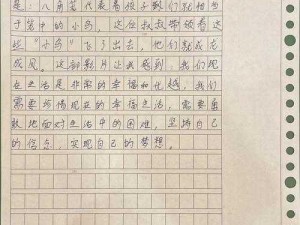 是:八角笼代表着孩子们就相当
于笼中的小鸟,这位叔叔带领着这
些“小鸟”飞了出去,他们就成龙
成凤。这部影片让我感到,我们现
在生活是非常的幸福和优越,我们
需要珍惜现在的幸福生活,需要勇
敢地面对生活中的困难,坚持自己
的信念,实现自己的梦想。